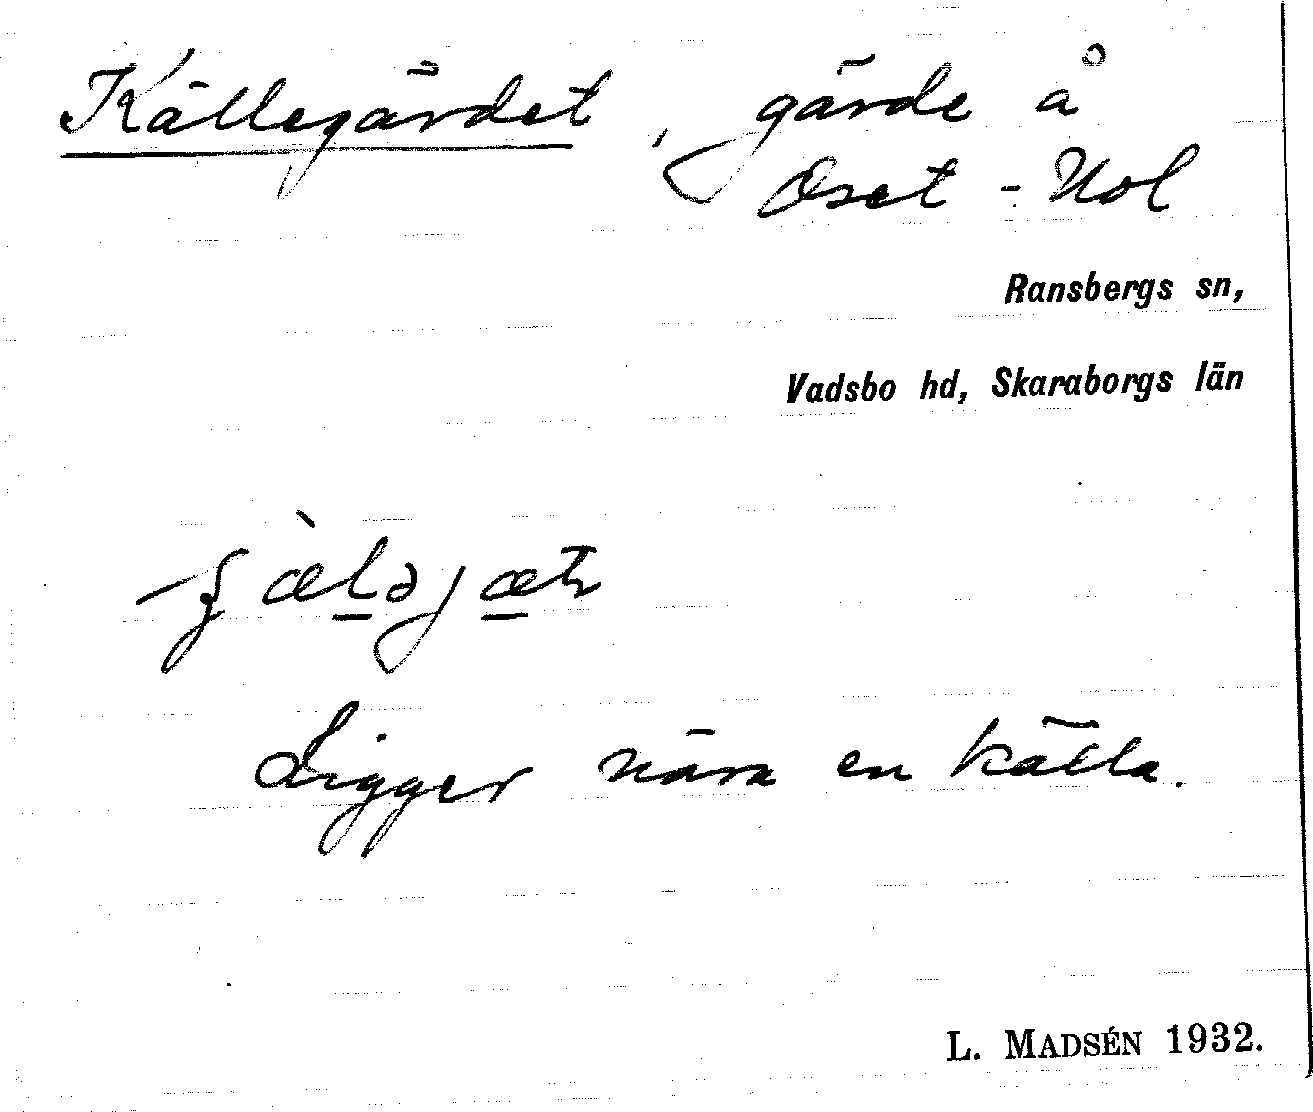 Källegärdet, gärde å
Oset - Nol
Ransbergs sn,
Vadsbo hd, Skaraborgs län
Ligger nära en källa.
L. MADSÉN 1932.